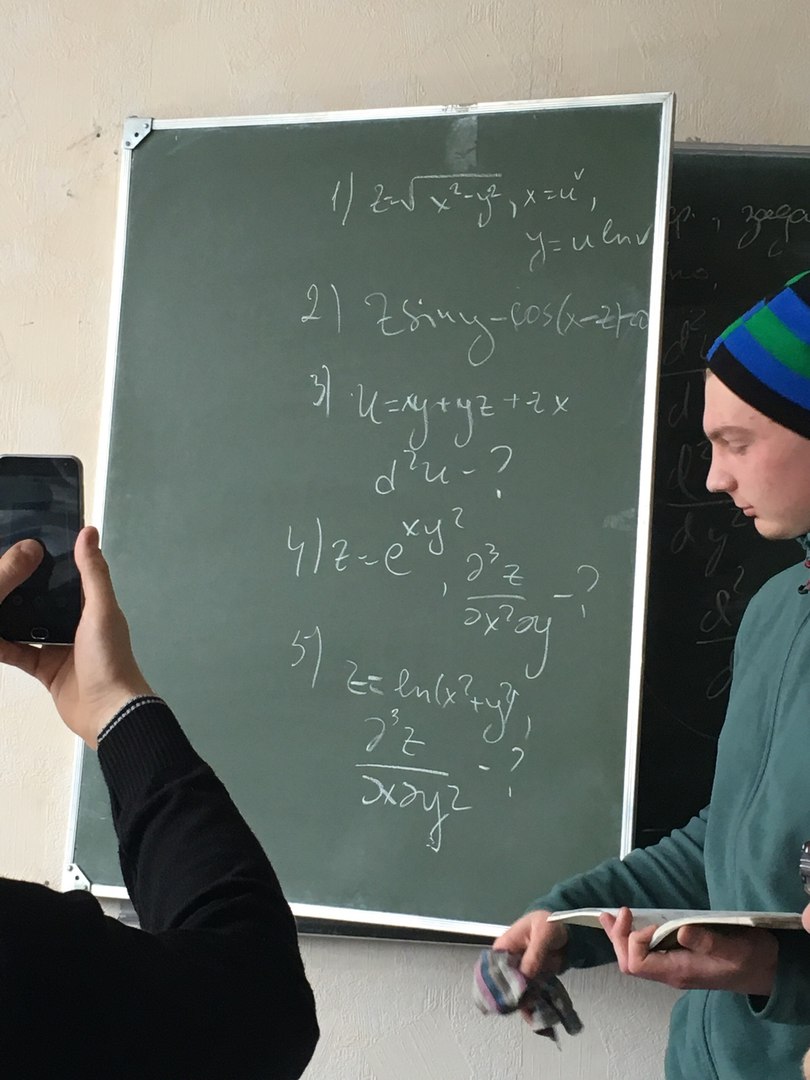 1) z=√(x²-y²), x=u^v,
y=u ln v
2) z sin y - cos(x-z)=0
3) u=xy+yz+zx
d²u - ?
4) z=e^(xy²), ∂³z/∂x²∂y - ?
5) z=ln(x²+y²),
∂³z/∂x∂y² - ?